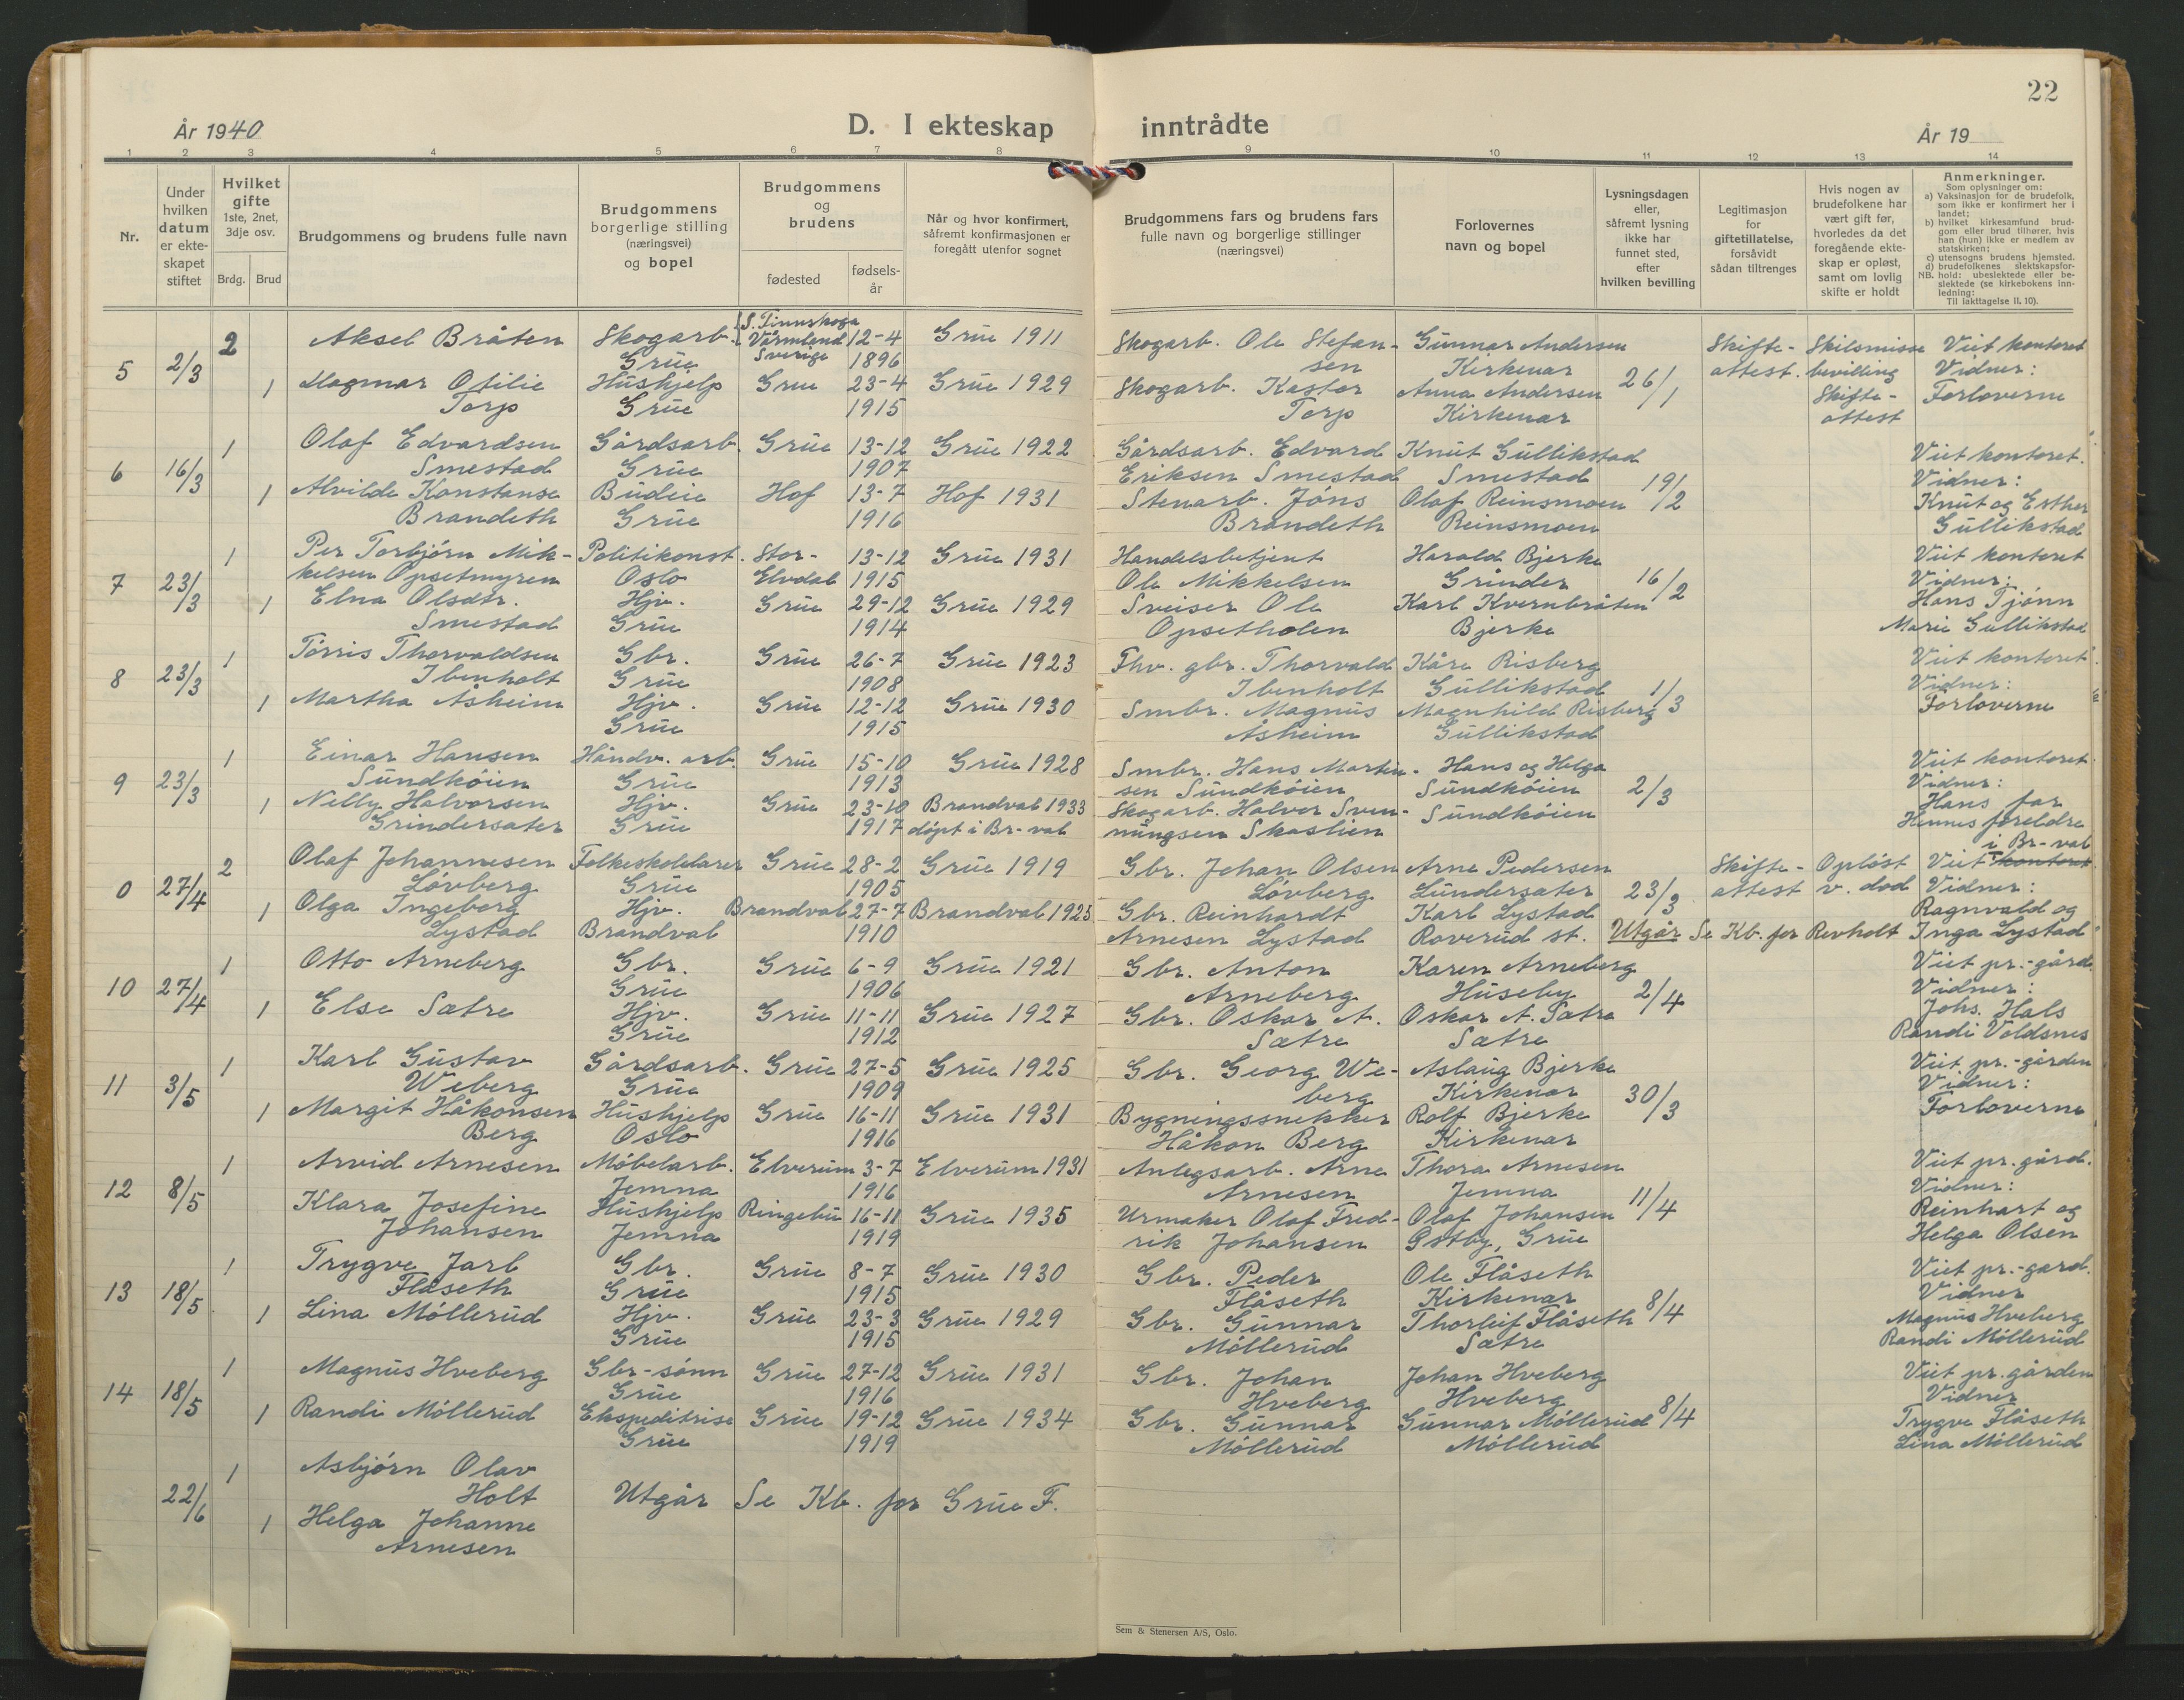 22
År 1940
D. I ekteskap inntrådte
År 19
1 2 3 4 5 6 7 8 9 10 11 12 13 14
Nr.
Under hvilken datum er ekteskapet stiftet
Hvilket gifte
1ste, 2net, 3dje osv.
Brdg. Brud
Brudgommens og brudens fulle navn
Brudgommens borgerlige stilling (næringsvei) og bopel
Brudgommens og brudens
fødested
fødsels-år
Når og hvor konfirmert, såfremt konfirmasjonen er foregått utenfor sognet
Brudgommens fars og brudens fars fulle navn og borgerlige stillinger (næringsvei)
Forlovernes navn og bopel
Lysningsdagen eller, såfremt lysning ikke har funnet sted, efter hvilken bevilling
Legitimasjon for giftetillatelse, forsåvidt sådan tiltrenges
Hvis nogen av brudefolkene har vært gift før, hvorledes da det foregående ekteskap er opløst, samt om lovlig skifte er holdt
Anmerkninger.
Som oplysninger om:
a) Vaksinasjon for de brudefolk, som ikke er konfirmert her i landet;
b) hvilket kirkesamfund brudgom eller brud tilhører, hvis han (hun) ikke er medlem av statskirken;
c) utensogns brudens hjemsted.
d) brudefolkenes slektskapsforhold: ubeslektede eller beslektede (se kirkebokens innledning:
NB.
Til iakttagelse II. 10).
5 2/3 2 Aksel Bråten Skogarb. S. Finnskoga 12-4 Grue 1911 Skogarb. Ole Stefan- Gunnar Andersen Skifte- Skilsmisse Viet kontoret
Grue Värmland Sverige 1896 sen Kirkenær 26/1 attest. bevilling Vidner:
1 Dagmar Otilie Hushjelp Grue 23-4 Grue 1929 Skogarb. Kastor Anna Andersen Skifte- Forloverne
Torp Grue 1915 Torp Kirkenær attest
6 16/3 1 Olaf Edvardsen Gårdsarb. Grue 13-12 Grue 1922 Gårdsarb. Edvard Knut Gullikstad Viet kontoret.
Smestad Grue 1907 Eriksen Smestad Smestad 19/2 Vidner:
1 Alvilde Konstanse Budeie Hof 13-7 Hof 1931 Stenarb. Jöns Olaf Reinsmoen Knut og Esther
Brandeth Grue 1916 Brandeth Reinsmoen Gullikstad
7 23/3 1 Per Torbjörn Mik- Politikonst. Stor- 13-12 Grue 1931 Handelsbetjent Harald Bjerke Viet kontoret
kelsen Opsetmyren Oslo Elvdal 1915 Ole Mikkelsen Grinder 16/2 Vidner:
1 Elna Olsdtr. Hjv. Grue 29-12 Grue 1929 Sveiser Ole Karl Kvernbråten Hans Tjönn
Smestad Grue 1914 Opsetholen Bjerke Marie Gullikstad
8 23/3 1 Törris Thorvaldsen Gbr. Grue 26-7 Grue 1923 Fhv. gbr. Thorvald Kåre Risberg Viet kontoret.
Ibenholt Grue 1908 Ibenholt Gullikstad 1/3 Vidner:
1 Martha Åsheim Hjv. Grue 12-12 Grue 1930 Smbr. Magnus Magnhild Risberg Forloverne
Grue 1915 Åsheim Gullikstad
9 23/3 1 Einar Hansen Håndv. arb. Grue 15-10 Grue 1928 Smbr. Hans Martin- Hans og Helga Viet kontoret.
Sundköien Grue 1913 sen Sundköien Sundköien 2/3 Vidner:
1 Nelly Halvorsen Hjv. Grue 23-10 Brandval 1933 Skogarb. Halvor Sven- Sundköien Hans far
Grindersæter Grue 1917 döpt i Br-val nungsen Skaslien Hennes foreldre
i Br-val
0 27/4 2 Olaf Johannesen Folkeskolelærer Grue 28-2 Grue 1919 Gbr. Johan Olsen Arne Pedersen Skifte- Oplöst Viet kontoret
Lövberg Grue 1905 Lövberg Lundersæter 23/3 attest v. död Vidner:
1 Olga Ingeborg Hjv. Brandval 27-7 Brandval 1925 Gbr. Reinhardt Karl Lystad Ragnvald og
Lystad Brandval 1910 Arnesen Lystad Roverud st. Utgår Se Kb. for Revholt Inga Lystad
10 27/4 1 Otto Arneberg Gbr. Grue 6-9 Grue 1921 Gbr. Anton Karen Arneberg Viet pr.-gård.
Grue 1906 Arneberg Huseby 2/4 Vidner:
1 Else Sætre Hjv. Grue 11-11 Grue 1927 Gbr. Oskar A. Oskar A. Sætre Johs. Hals
Grue 1912 Sætre Sætre Randi Voldsnes
11 3/5 1 Karl Gustav Gårdsarb. Grue 27-5 Grue 1925 Gbr. Georg We- Aslaug Bjerke Viet pr.-gården
Weberg Grue 1909 berg Kirkenær 30/3 Vidner:
1 Margit Håkonsen Hushjelp Grue 16-11 Grue 1931 Bygningssnekker Rolf Bjerke Forloverne
Berg Oslo 1916 Håkon Berg Kirkenær
12 8/5 1 Arvid Arnesen Möbelarb. Elverum 3-7 Elverum 1931 Anlegsarb. Arne Thora Arnesen Viet pr. gård.
Jemna 1916 Arnesen Jemna 11/4 Vidner:
Klara Josefine Hushjelp Ringebu 16-11 Grue 1935 Urmaker Olaf Fred- Olaf Johansen Reinhart og
Johansen Jemna 1919 rik Johansen Östby, Grue Helga Olsen
13 18/5 1 Trygve Jarl Gbr. Grue 8-7 Grue 1930 Gbr. Peder Ole Flåseth Viet pr.-gard.
Flåseth Grue 1915 Flåseth Kirkenær 8/4 Vidner
1 Lina Möllerud Hjv. Grue 23-3 Grue 1929 Gbr. Gunnar Thorleif Flåseth Magnus Hveberg
Grue 1915 Möllerud Sætre Randi Möllerud
14 18/5 1 Magnus Hveberg Gbr-sönn Grue 27-12 Grue 1931 Gbr. Johan Johan Hveberg Viet pr. gården
Grue 1916 Hveberg Hveberg 8/4 Vidner
1 Randi Möllerud Ekspeditrise Grue 19-12 Grue 1934 Gbr. Gunnar Gunnar Möllerud Trygve Flåseth
Grue 1919 Möllerud Möllerud Lina Möllerud
22/6 1 Asbjörn Olav
Holt Utgår Se Kb. for Grue F.
1 Helga Johanne
Arnesen
Sem & Stenersen A/S, Oslo.